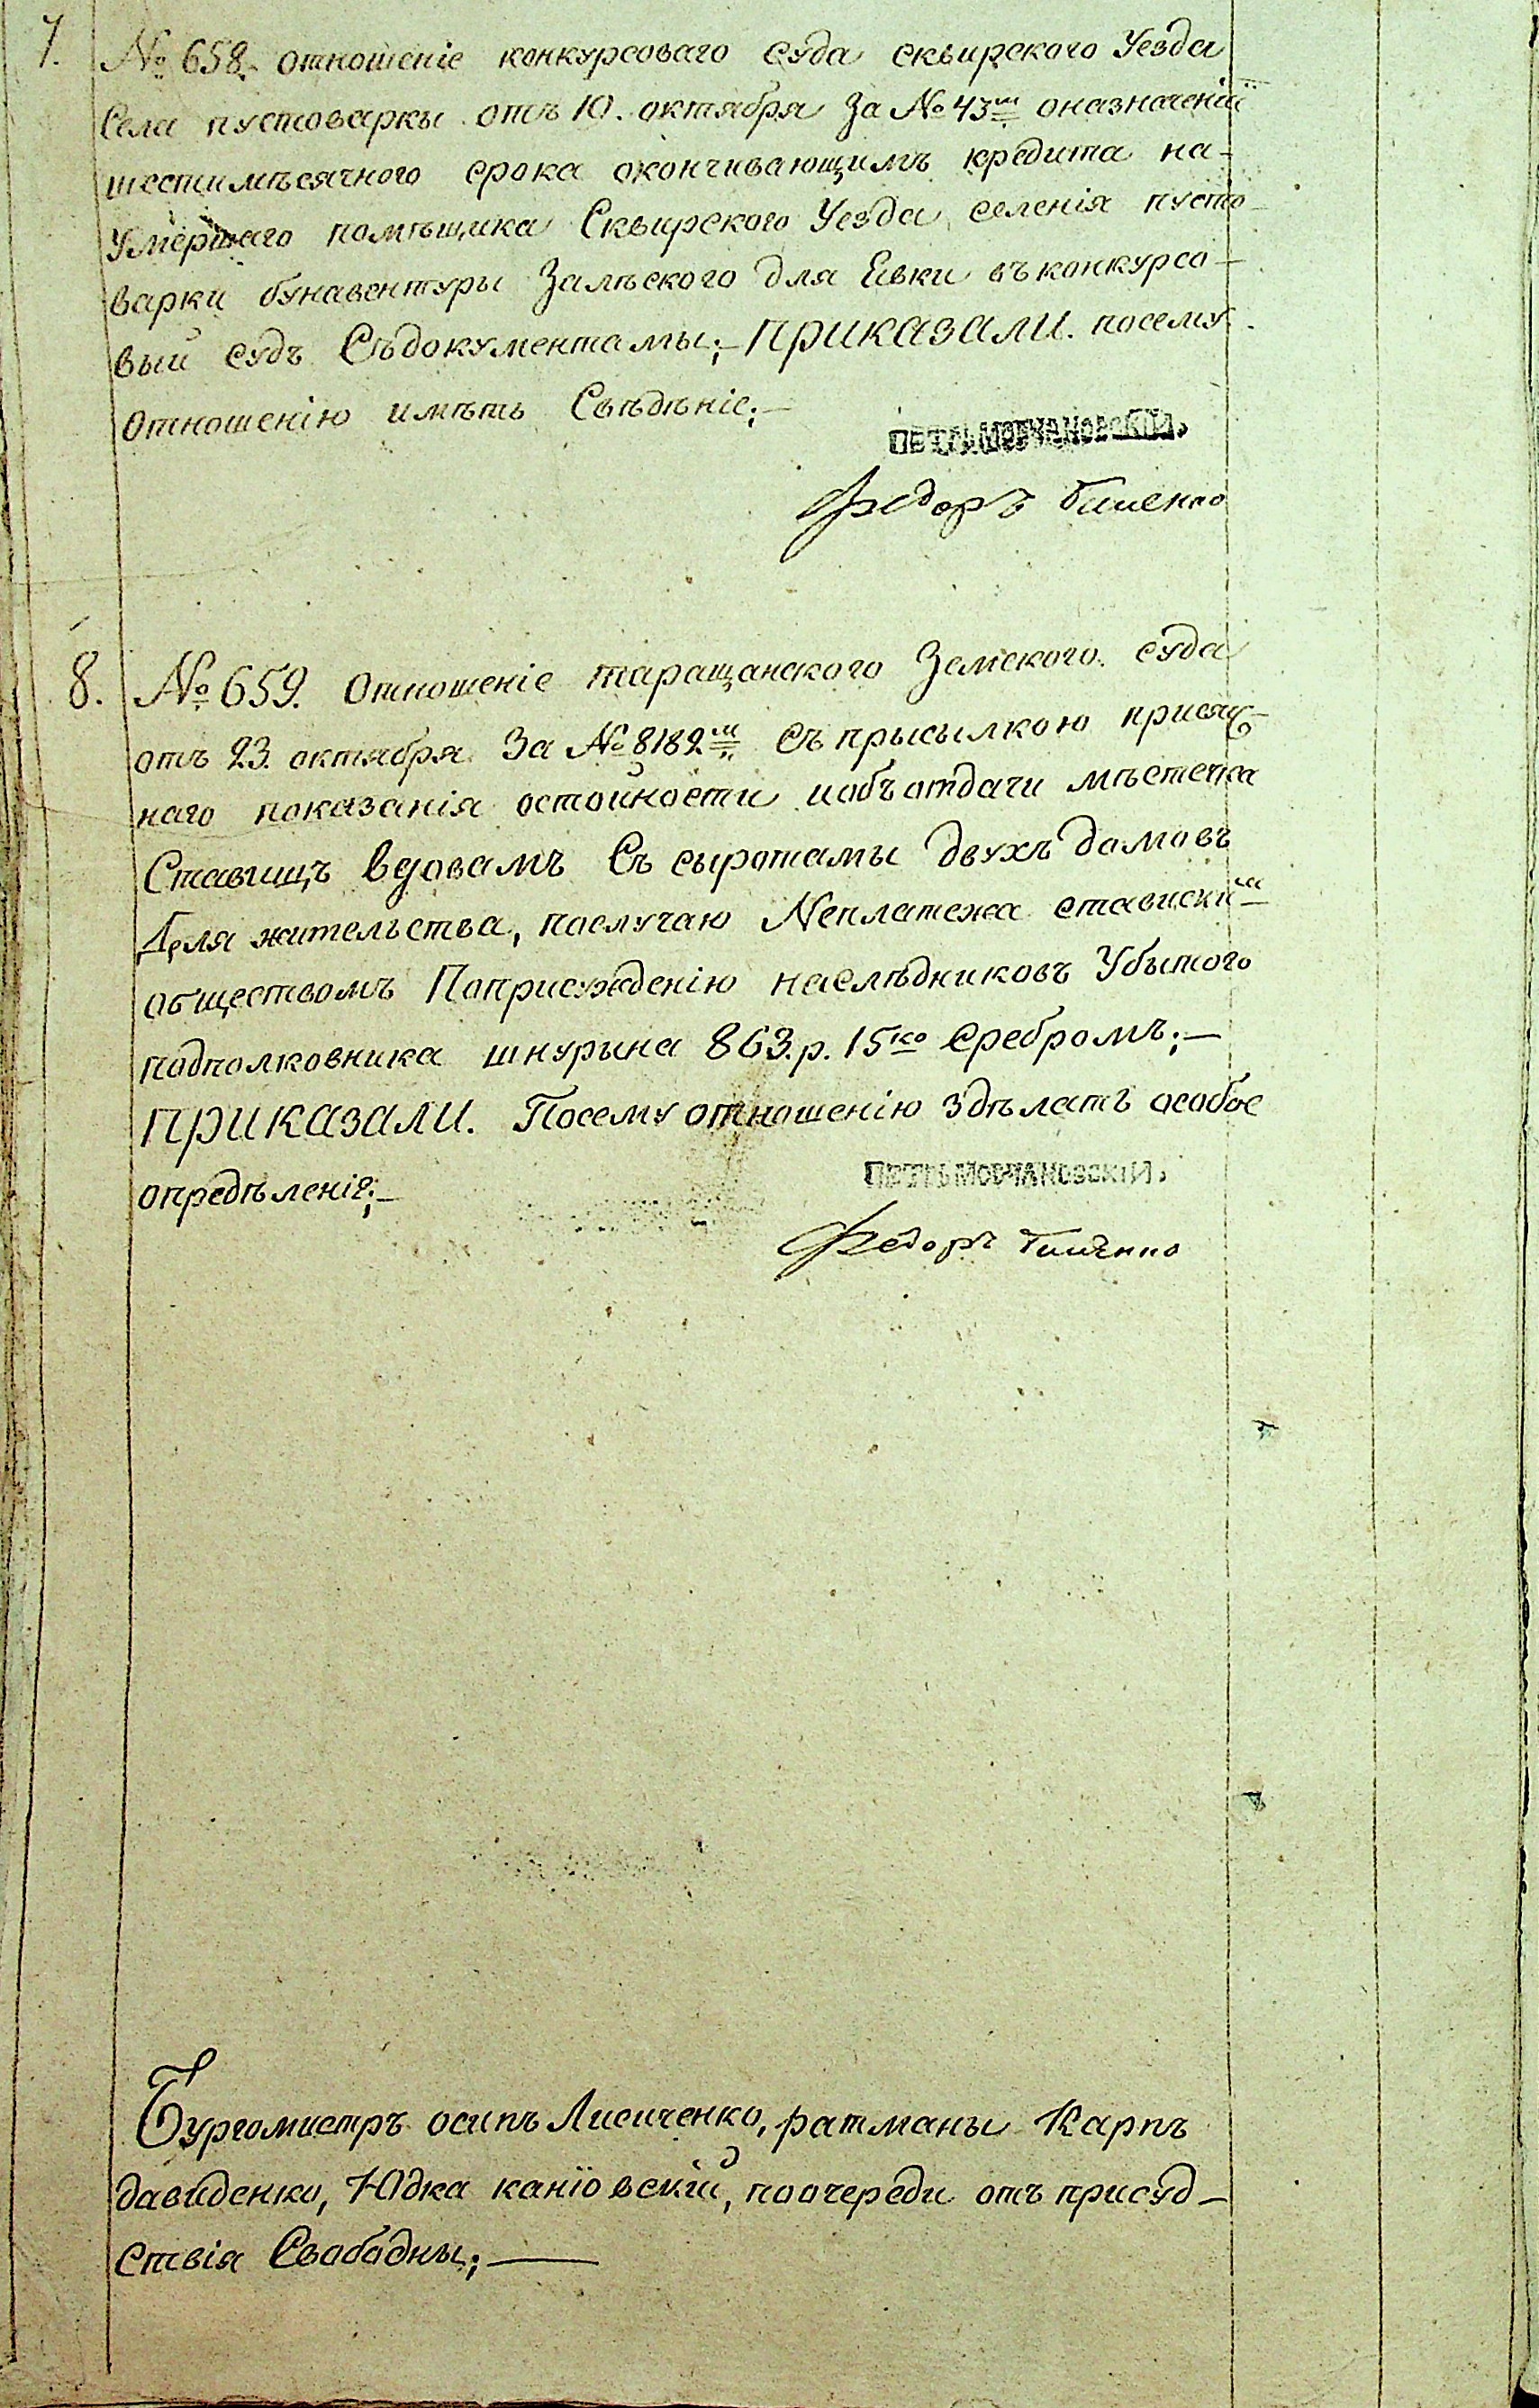 7. № 658. отношеніе конкурсоваго суда сквирского Уезда
Села пустоварки отъ 10. октября За № 43м оназначеніи
шестимѣсячного срока окончивающимъ кредита на-
Умершаго помѣщика Сквирского Уезда, селенія пусто-
варки бунавентуры Залѣского для Евки въ конкурсо-
вый судъ Съдокументамы;- ПРИКАЗАЛИ. посему
Отношенію имѣть Свѣдѣніе;-
ПЕТРЬ МОВЧАНОВСКІЙ.
Федоръ
8. № 659. Отношеніе таращанского Земского суда
отъ 23. октября За № 8182м Съ прысылкою присяж-
наго показанія остойности иобъ отдачи мѣстечка
Ставищъ вдовамъ Съ сыротамы двухъ домовъ
Для жительства, послучаю Nеплатежа ставискимъ
обществомъ Поприсужденію наслѣдниковъ Убытого
подполковника шнурына 863.р. 15ко Сребромъ;-
ПРИКАЗАЛИ. Посему отношенію здѣлать особое
опредѣленіе;-
ПЕТРЬ МОВЧАНОВСКІЙ.
Федоръ
Бургомистръ осипъ Лисиченко, ратманы Карпъ
давиденко, Юдка канїовскій, поочереди отъ присуд-
ствія Свабодны;-